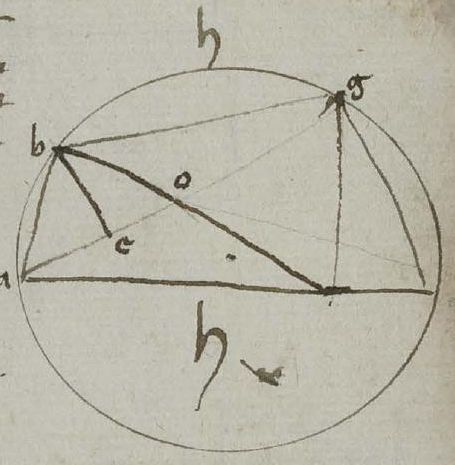 h
g
b
o
c
a
h